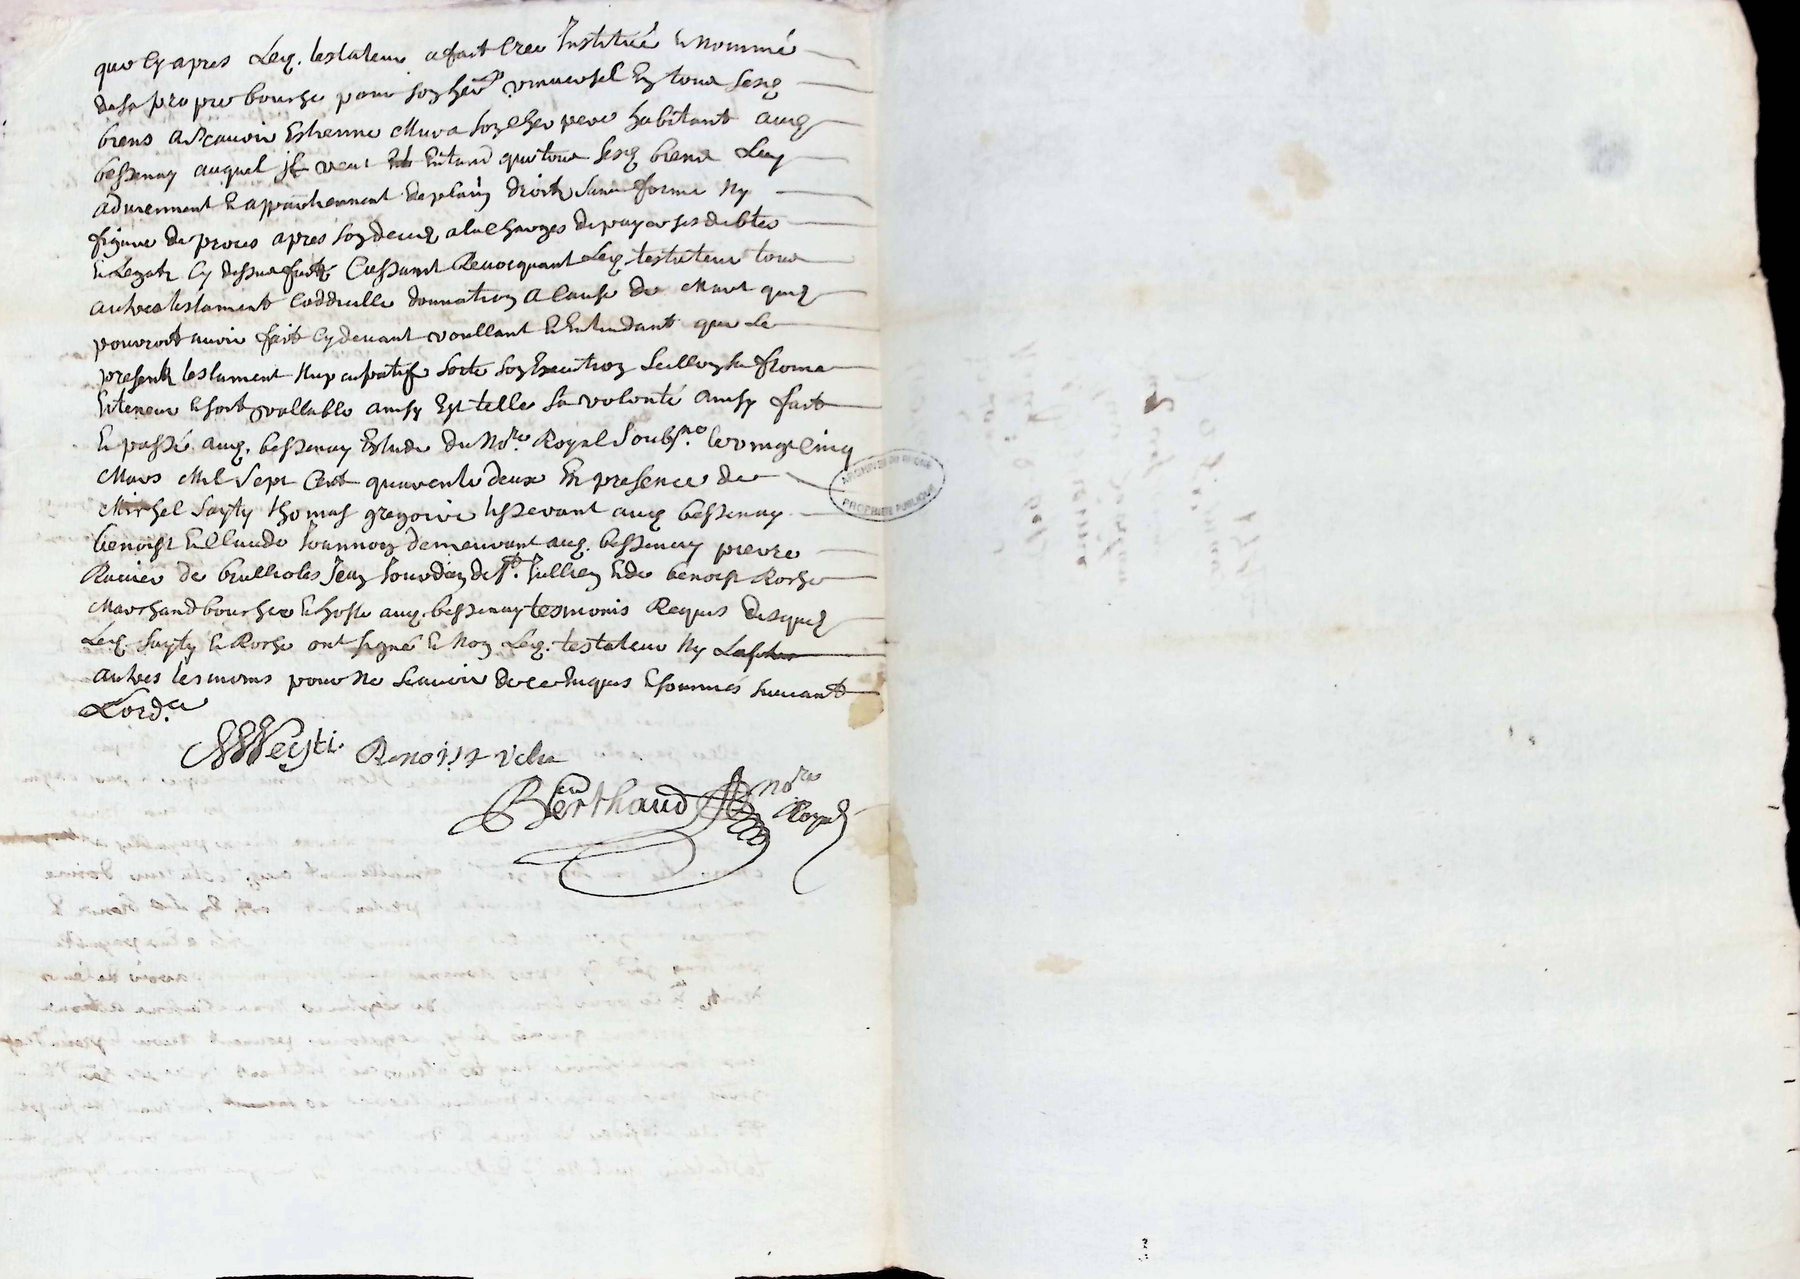 que Cy apres Led. testateur a fait Creé Institué & Nommé
de sa propre bouche pour son her. universel En tous sesd.
biens a Scavoir Estienne Mura son Cher pere habitant aud.
bessenay auquel il veut Entand que tous sesd. biens Luy
adviennent & appartiennent de plain droit sans forme Ny
figure de proces apres son deced a la Charges de payer ses debtes
& Legats Cy dessus faits Cassant Revocquant Led. testateur tous
autres testament Coddicille donnation A Cause de Mort quil
pourroit avoir fait Cy devant voullant & Entendant que Le
present testament Nupcupatif sorte son Execution Sellon sa forme
& teneur & soit vallable ainsy Est telle sa volonté ainsy fait
& passé aud. bessenay Estude du No.re Royal Soubs.né le vingt Cinq
Mars Mil Sept Cent quarente deux En presence de
Michel Sayty thomas gregoire tisserant aud. bessenay
benoist & Claude Joannon demeurant aud. bessenay pierre
Ravier de brullioles Jean Jourdan de St. Jullien & de benoist Roche
Marchand boucher & hoste aud. bessenay tesmoins Requis desquels
Led. Sayty & Roche ont signé & Non Led. testateur Ny
autres tesmoins pour Ne Scavoir de ce Enquis & sommés suivant
Lord.ce
Benoist
Berthaud No.re
Royal
ARCHIVES DU RHONE
PROPRIÉTÉ PUBLIQUE